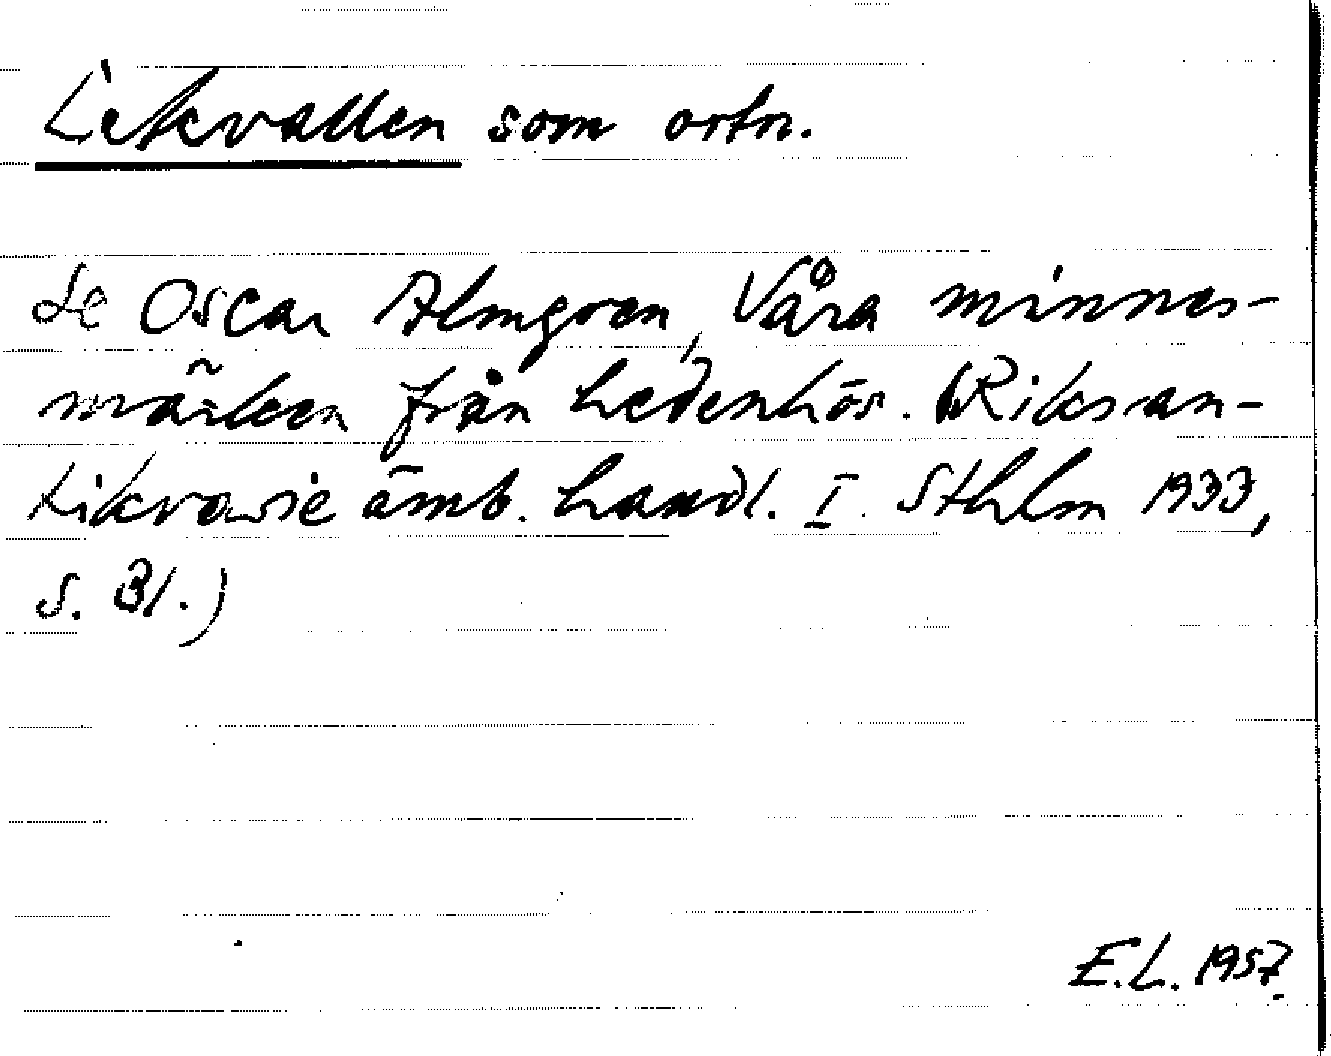 Lekvallen som ortn.
Se Oscar Almgren, Våra minnes-
märken från hedenhös. (Riksan-
tikvarie ämb. handl. I. Sthlm 1933,
s. 31.)
E.L. 1957.